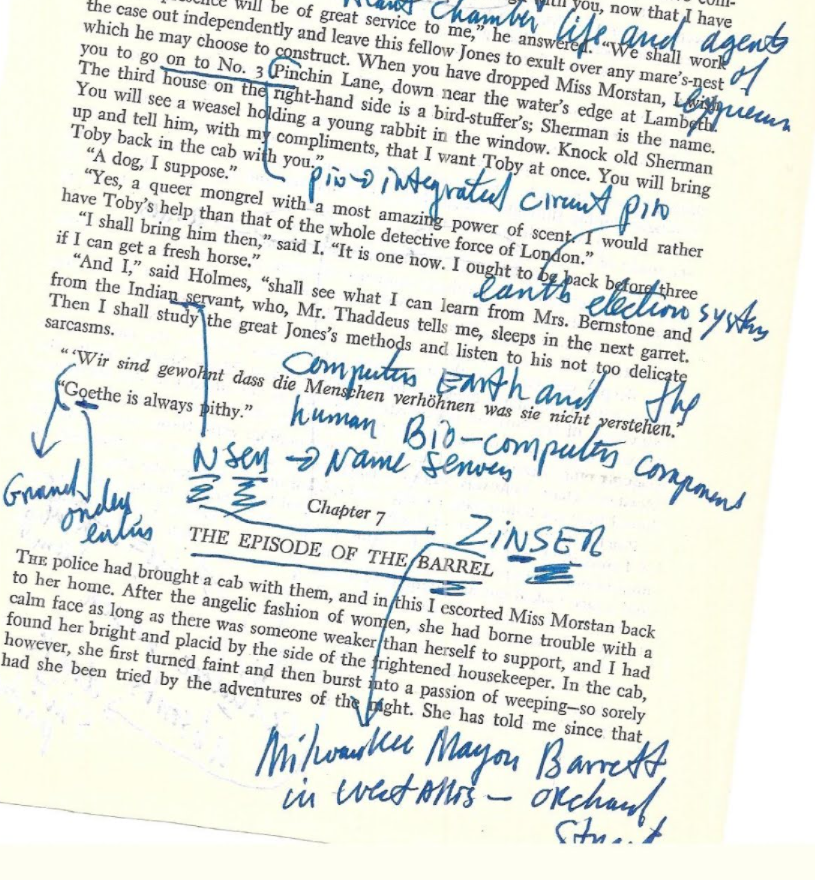 presence will be of great service to me," he answered. "We shall work
with you, now that I have
Chamber life and agents
of
the case out independently and leave this fellow Jones to exult over any mare's-nest
which he may choose to construct. When you have dropped Miss Morstan, I wish
you to go on to No. 3 Pinchin Lane, down near the water's edge at Lambeth.
The third house on the right-hand side is a bird-stuffer's; Sherman is the name.
You will see a weasel holding a young rabbit in the window. Knock old Sherman
up and tell him, with my compliments, that I want Toby at once. You will bring
Toby back in the cab with you."
"A dog, I suppose."
pin → integrated circuit pin
"Yes, a queer mongrel with a most amazing power of scent. I would rather
have Toby's help than that of the whole detective force of London."
"I shall bring him then," said I. "It is one now. I ought to be back before three
if I can get a fresh horse."
earth election system
"And I," said Holmes, "shall see what I can learn from Mrs. Bernstone and
from the Indian servant, who, Mr. Thaddeus tells me, sleeps in the next garret.
Then I shall study the great Jones's methods and listen to his not too delicate
sarcasms.
Computer Earth and the
" 'Wir sind gewohnt dass die Menschen verhöhnen was sie nicht verstehen.'
human Bio-computer component
"Goethe is always pithy."
NSER → Name Server
Grand
order
Chapter 7
ZiNSER
THE EPISODE OF THE BARREL
THE police had brought a cab with them, and in this I escorted Miss Morstan back
to her home. After the angelic fashion of women, she had borne trouble with a
calm face as long as there was someone weaker than herself to support, and I had
found her bright and placid by the side of the frightened housekeeper. In the cab,
however, she first turned faint and then burst into a passion of weeping—so sorely
had she been tried by the adventures of the night. She has told me since that
Milwaukee Mayor Barrett
in West Allis – Orchard
Street